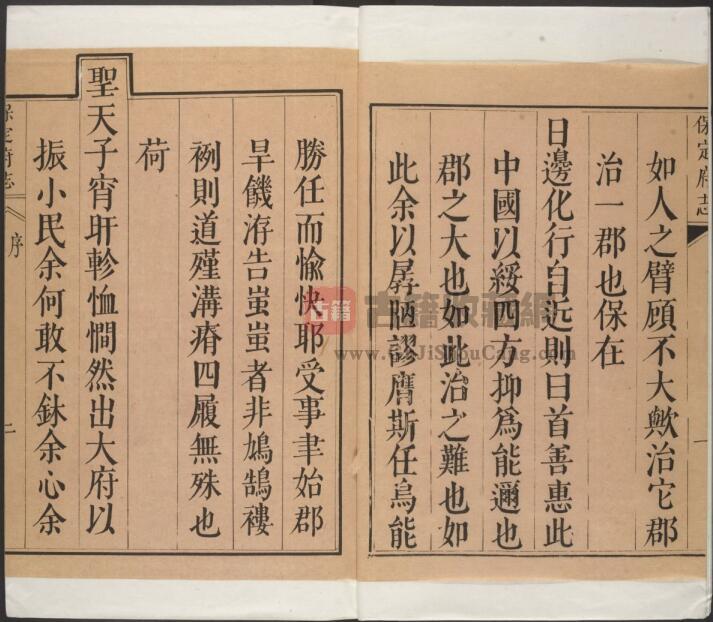 保定府志
一
如人之臂顧不大歟治它郡
治一郡也保在
日邊化行自近則曰首善惠此
中國以綏四方抑爲能邇也
郡之大也如此治之難也如
此余以孱陋謬膺斯任烏能
勝任而愉快耶受事聿始郡
旱饑洊告蚩蚩者非鳩鵠褸
裂則道殣溝瘠四履無殊也
荷
聖天子宵旰軫恤憪然出大府以
振小民余何敢不鉥余心余
保定府志
序
二
古籍 古籍收藏網
www.GuJiShouCang.com